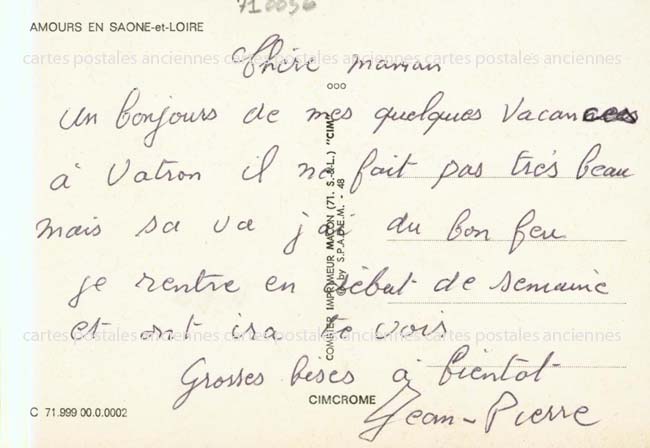 710056
AMOURS EN SAONE-et-LOIRE
cartes postales anciennes cartes postales anciennes cartes postales anciennes
Chère maman
un bonjours de mes quelques vacances
à Vatron il ne fait pas très beau
mais sa va j'ai du bon feu
je rentre en début de semaine
et ont ira te vois
cartes postales anciennes cartes postales anciennes cartes postales anciennes
Grosses bises à bientot
Jean-Pierre
COMBIER IMPRIMEUR MACON (71. S.-&-L.) "CIM"
© by S.P.A.D.E.M. - 48
CIMCROME
C 71.999 00.0.0002